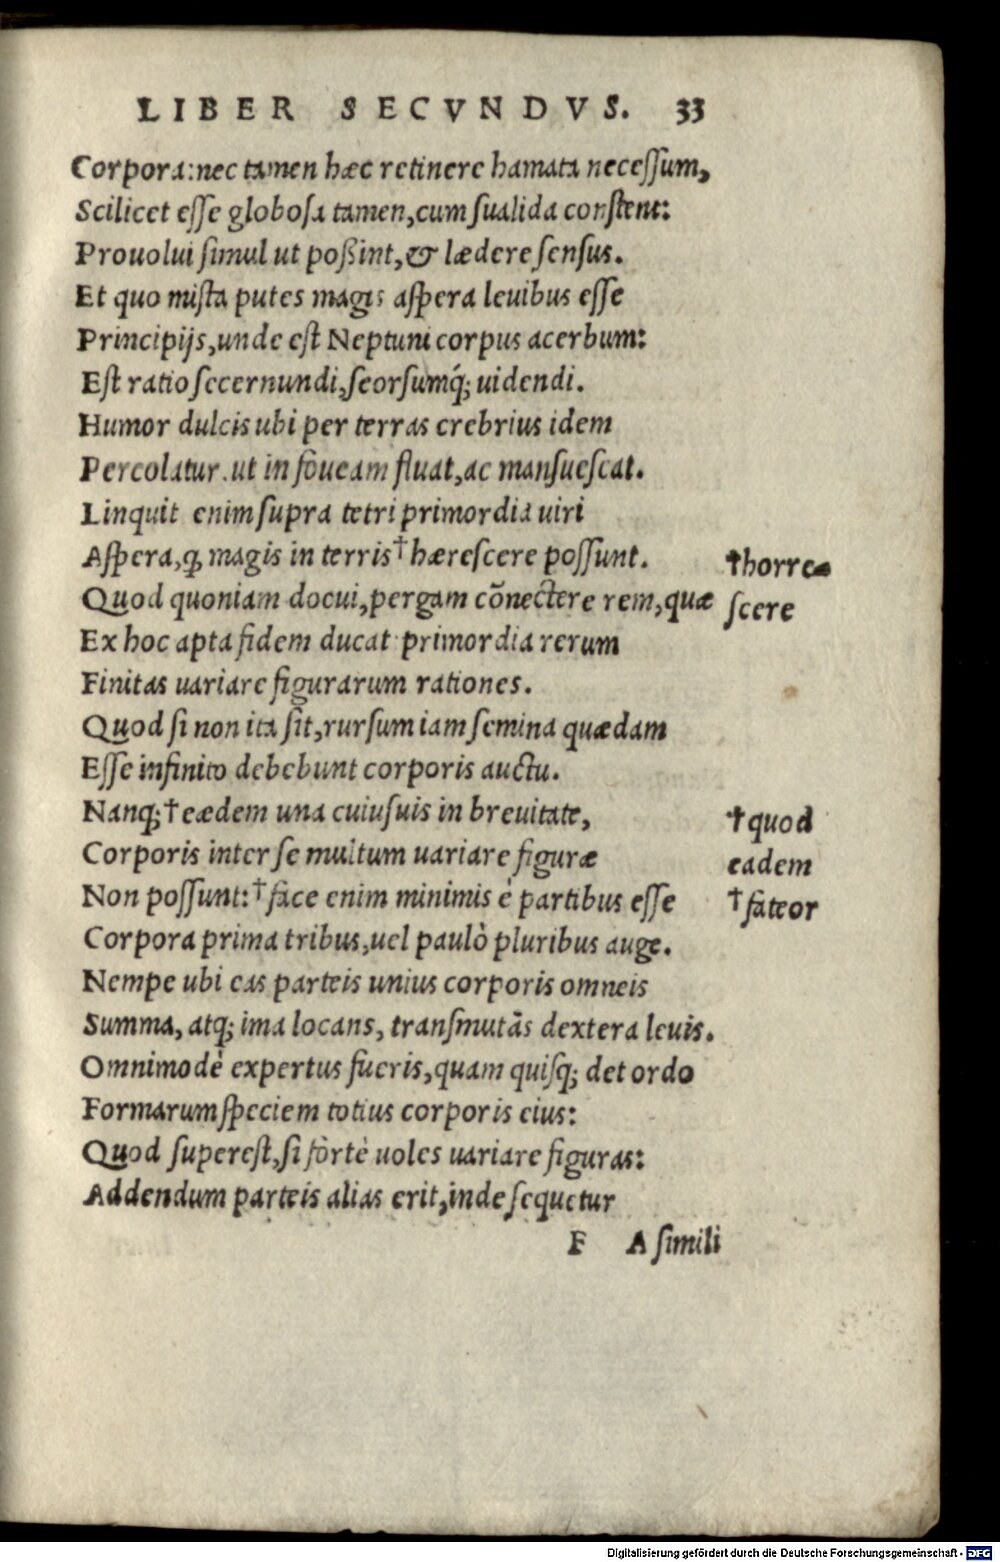 LIBER SECVNDVS. 33
Corpora: nec tamen hæc retinere hamata necessum,
Scilicet esse globosa tamen, cum sualida constent:
Prouolui simul ut poßint, & lædere sensus.
Et quo mista putes magis aspera leuibus esse
Principijs, unde est Neptuni corpus acerbum:
Est ratio secernundi, seorsumq́; uidendi.
Humor dulcis ubi per terras crebrius idem
Percolatur. ut in foueam fluat, ac mansuescat.
Linquit enim supra tetri primordia uiri
Aspera, q̨ magis in terris †hærescere possunt. †horre-
Quod quoniam docui, pergam cõnectere rem, quæ scere
Ex hoc apta fidem ducat primordia rerum
Finitas uariare figurarum rationes.
Quod si non ita sit, rursum iam semina quædam
Esse infinito debebunt corporis auctu.
Nanq; †eædem una cuiusuis in breuitate, †quod
Corporis inter se multum uariare figuræ eadem
Non possunt: †face enim minimis è partibus esse †fateor
Corpora prima tribus, uel paulò pluribus auge.
Nempe ubi eas parteis unius corporis omneis
Summa, atq; ima locans, transmutãs dextera leuis.
Omnimodè expertus fueris, quam quisq; det ordo
Formarum speciem totius corporis eius:
Quod superest, si fortè uoles uariare figuras:
Addendum parteis alias erit, inde sequetur
F A simili
Digitalisierung gefördert durch die Deutsche Forschungsgemeinschaft - DFG